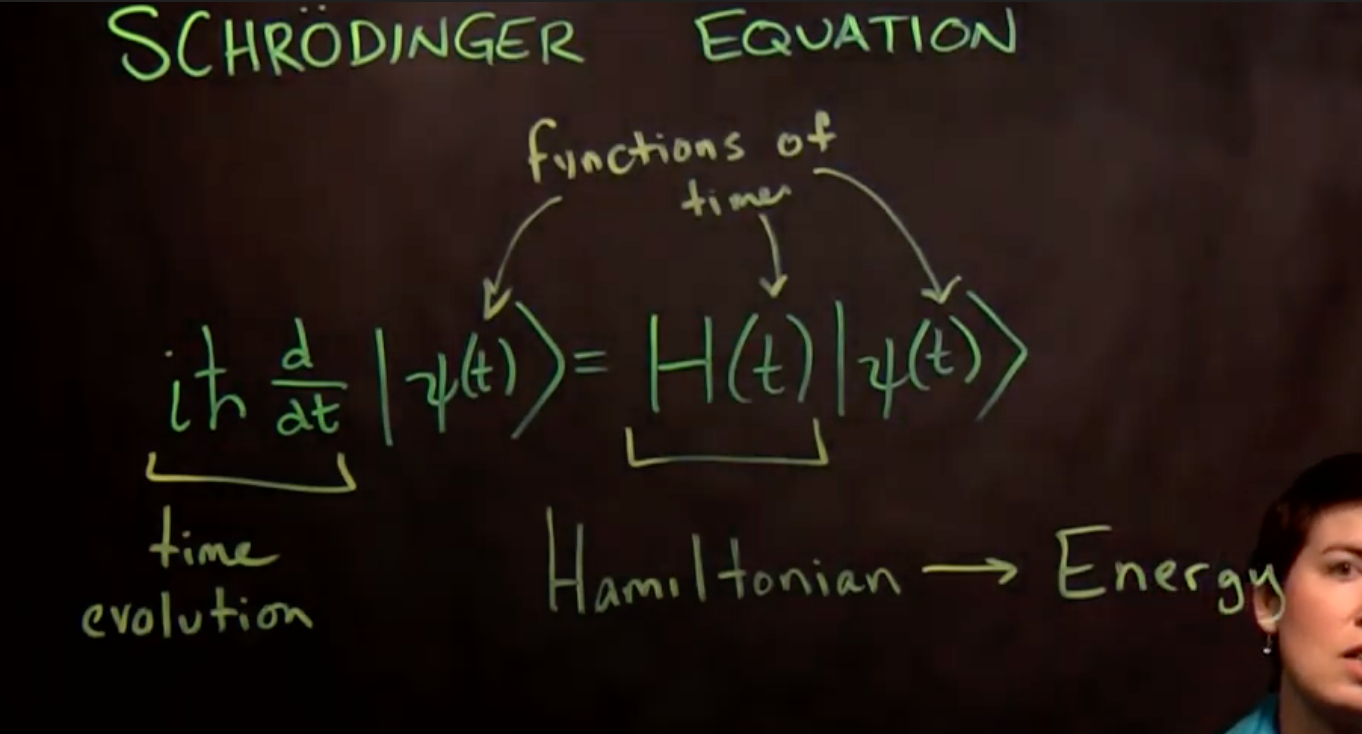 SCHRÖDINGER EQUATION
functions of
time
iħ d/dt |ψ(t)⟩ = H(t)|ψ(t)⟩
time
evolution
Hamiltonian → Energy